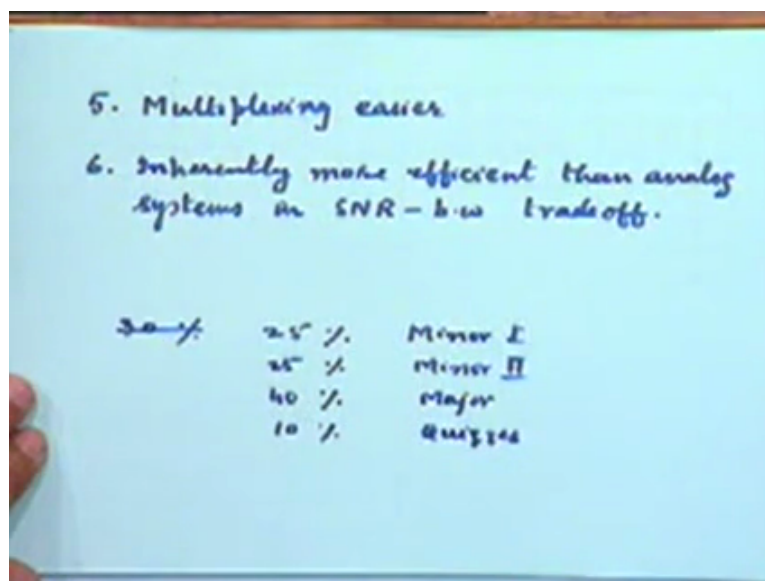 5. Multiplexing easier
6. Inherently more efficient than analog
systems in SNR - b.w tradeoff.
30 % 25 % Minor I
25 % Minor II
40 % Major
10 % Quizzes